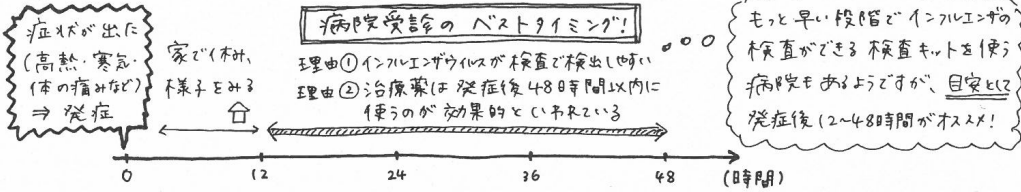 症状が出た
(高熱・寒気・
体の痛みなど)
⇒ 発症
家で休み、
様子をみる
病院受診の ベストタイミング!
理由① インフルエンザウイルスが検査で検出しやすい
理由② 治療薬は発症後48時間以内に
使うのが効果的といわれている
もっと早い段階でインフルエンザの
検査ができる検査キットを使う
病院もあるようですが、目安として
発症後12~48時間がオススメ!
0 12 24 36 48 (時間)